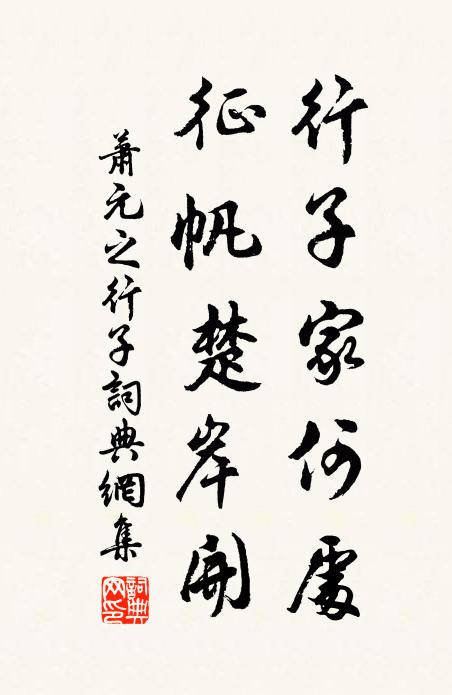 行子家何處
征帆楚岸開
蕭元之行子詞典網集
詞典网印